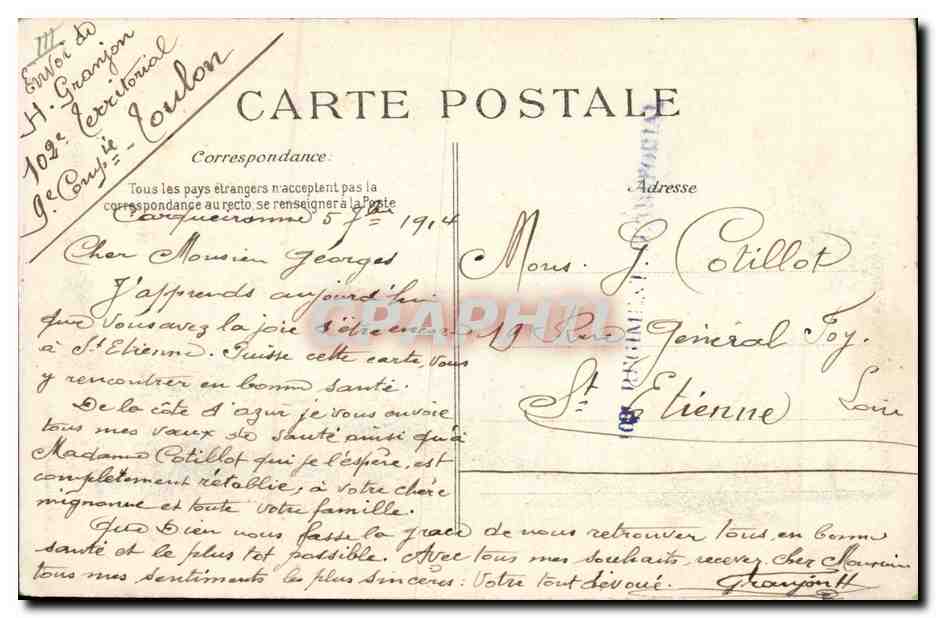 III
Envoi de
H. Granjon
102e Territorial
9e Compie - Toulon
CARTE POSTALE
Correspondance:
Tous les pays étrangers n'acceptent pas la
correspondance au recto, se renseigner à la Poste
Adresse
Carqueiranne 5 7bre 1914
Cher Monsieur Georges
J'apprends aujourd'hui
que vous avez la joie d'être encore
à St Etienne. Puisse cette carte, vous
y rencontrer en bonne santé.
De la côte d'azur je vous envoie
tous mes vœux de santé ainsi qu'à
Madame Cotillot qui je l'espère, est
complètement rétablie, à votre chère
mignonne et toute votre famille.
Que Dieu nous fasse la grace de nous retrouver tous, en bonne
santé et le plus tot possible. Avec tous mes souhaits, recevez, Cher Monsieur
tous mes sentiments les plus sincères: Votre tout dévoué. Granjon H
Mons. G Cotillot
19 Rue Général Foy.
St Etienne Loire
102e REGIMENT TERRITORIAL
CPAPHIL